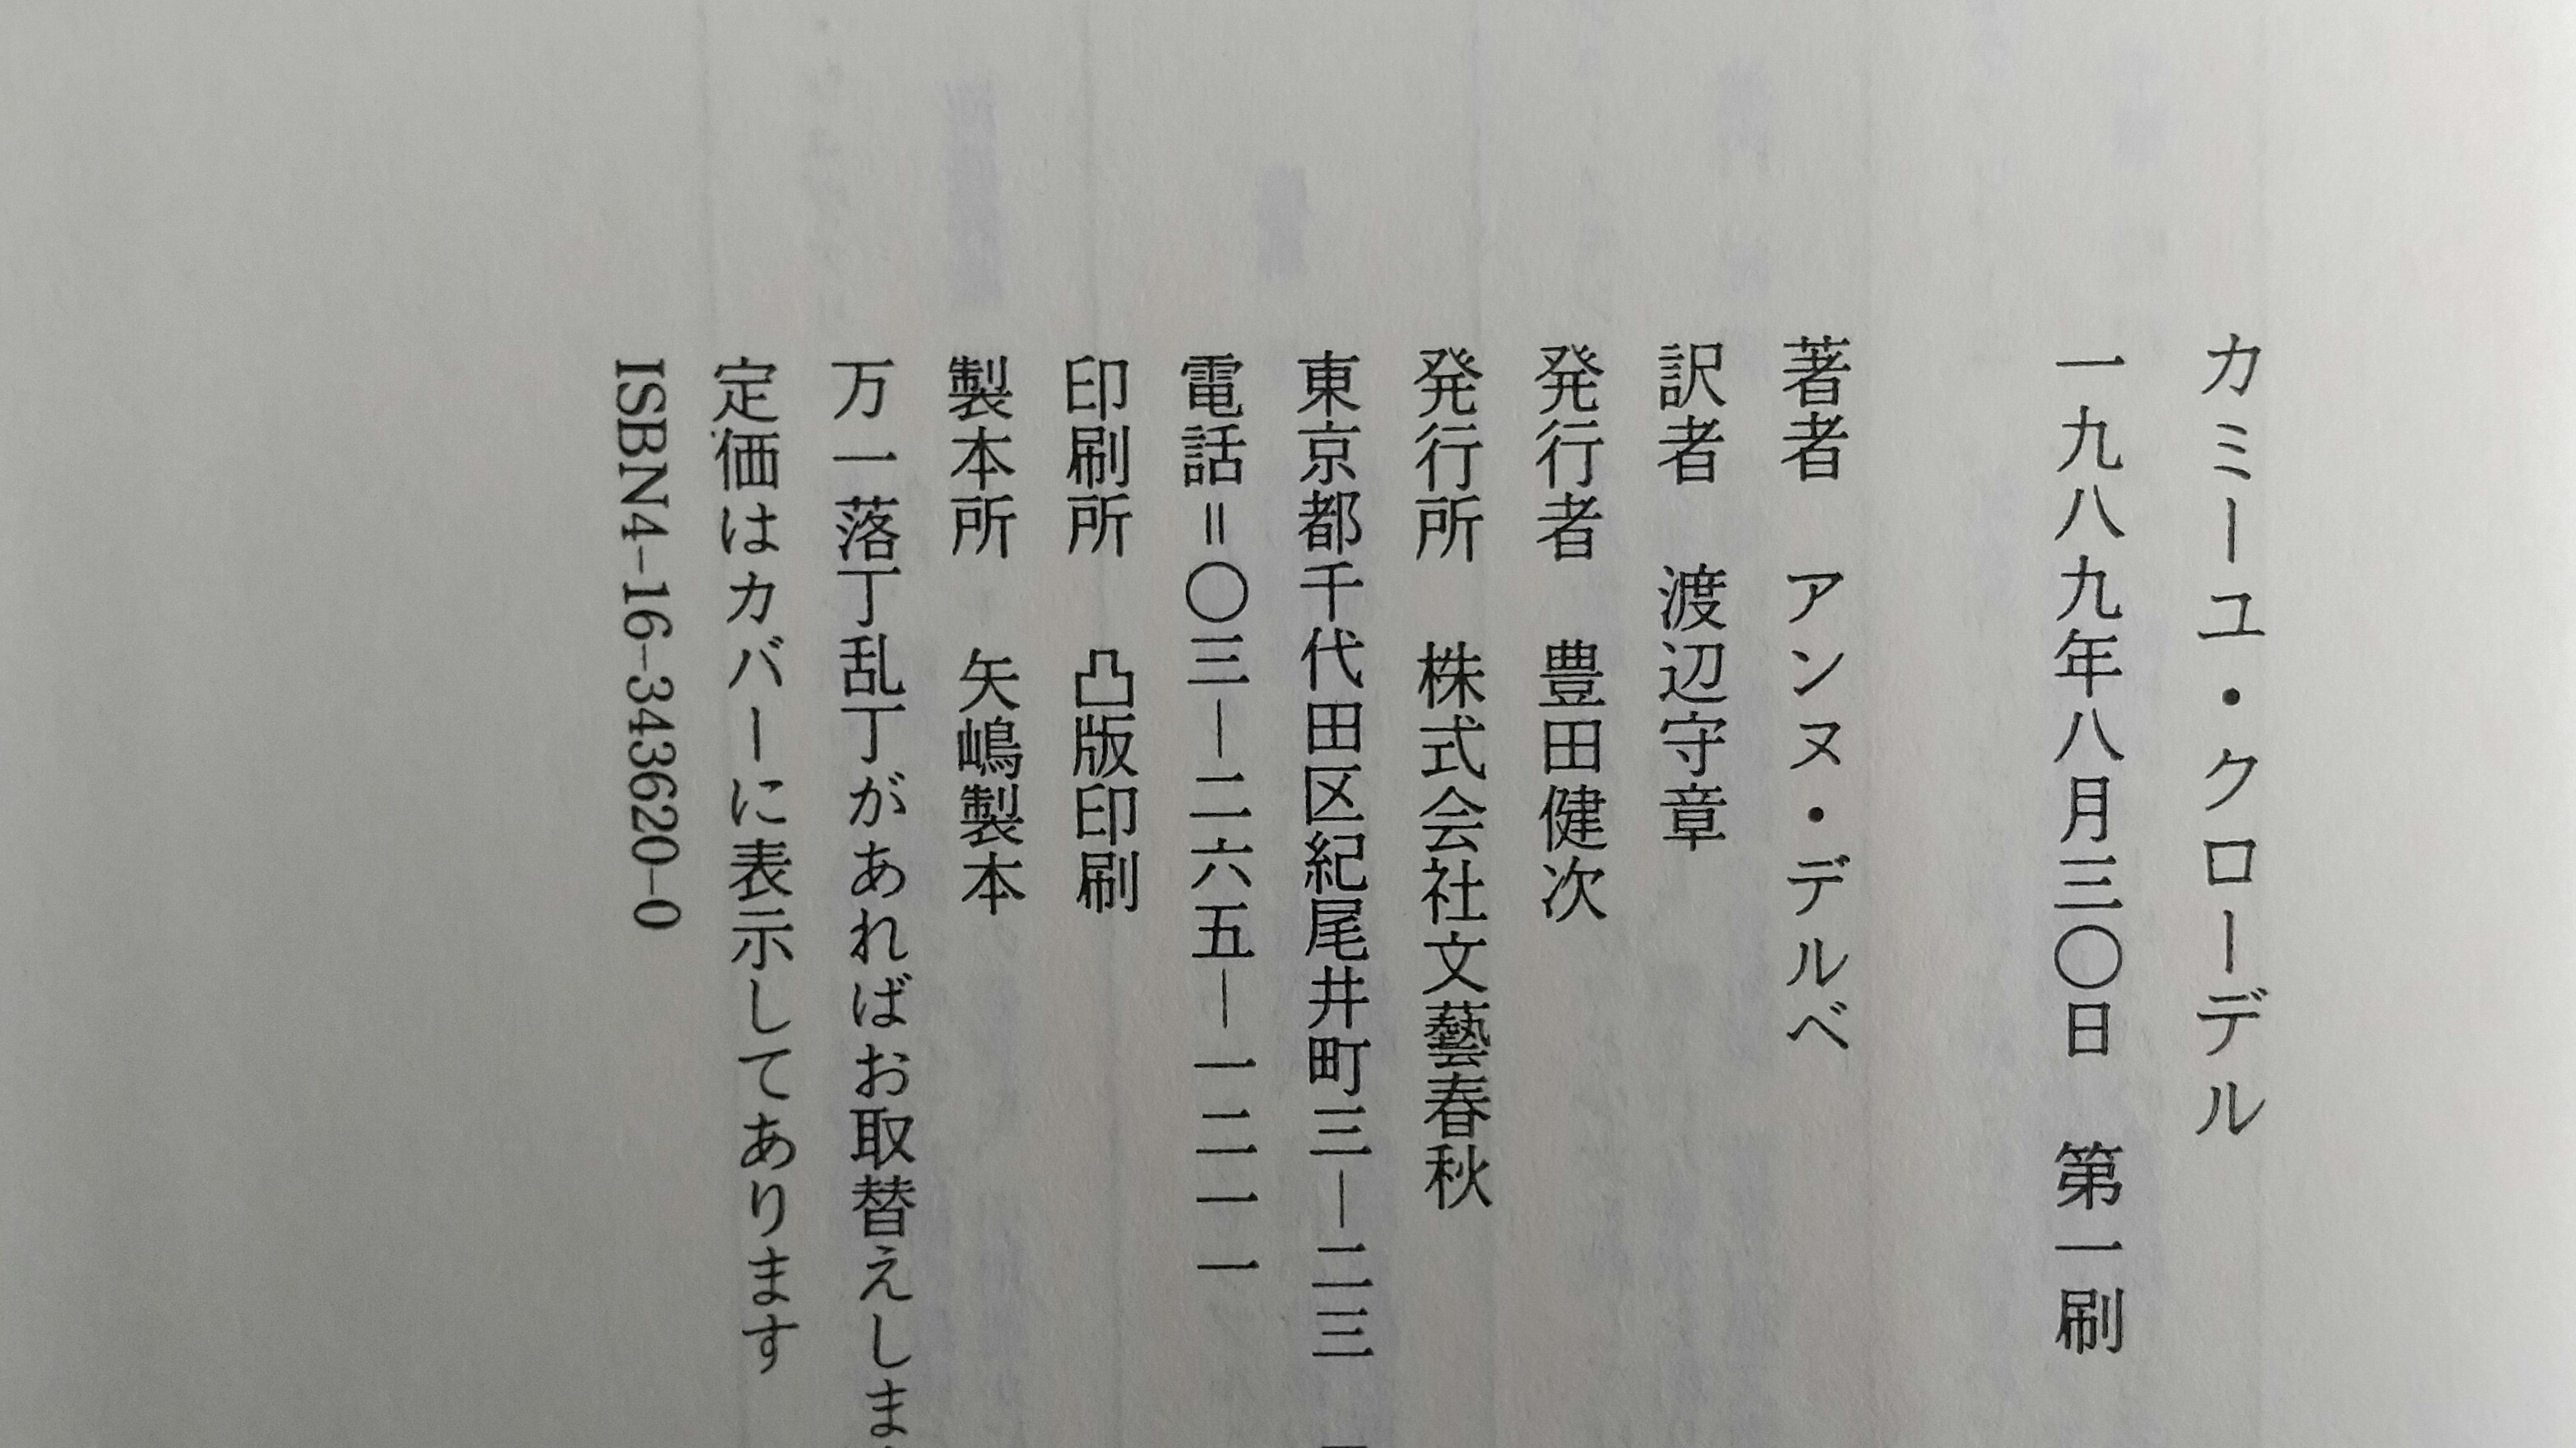 カミーユ・クローデル
一九八九年八月三〇日　第一刷
著者　アンヌ・デルベ
訳者　渡辺守章
発行者　豊田健次
発行所　株式会社文藝春秋
東京都千代田区紀尾井町三―二三
電話＝〇三―二六五―一二一一
印刷所　凸版印刷
製本所　矢嶋製本
万一落丁乱丁があればお取替えしま
定価はカバーに表示してあります
ISBN4-16-343620-0